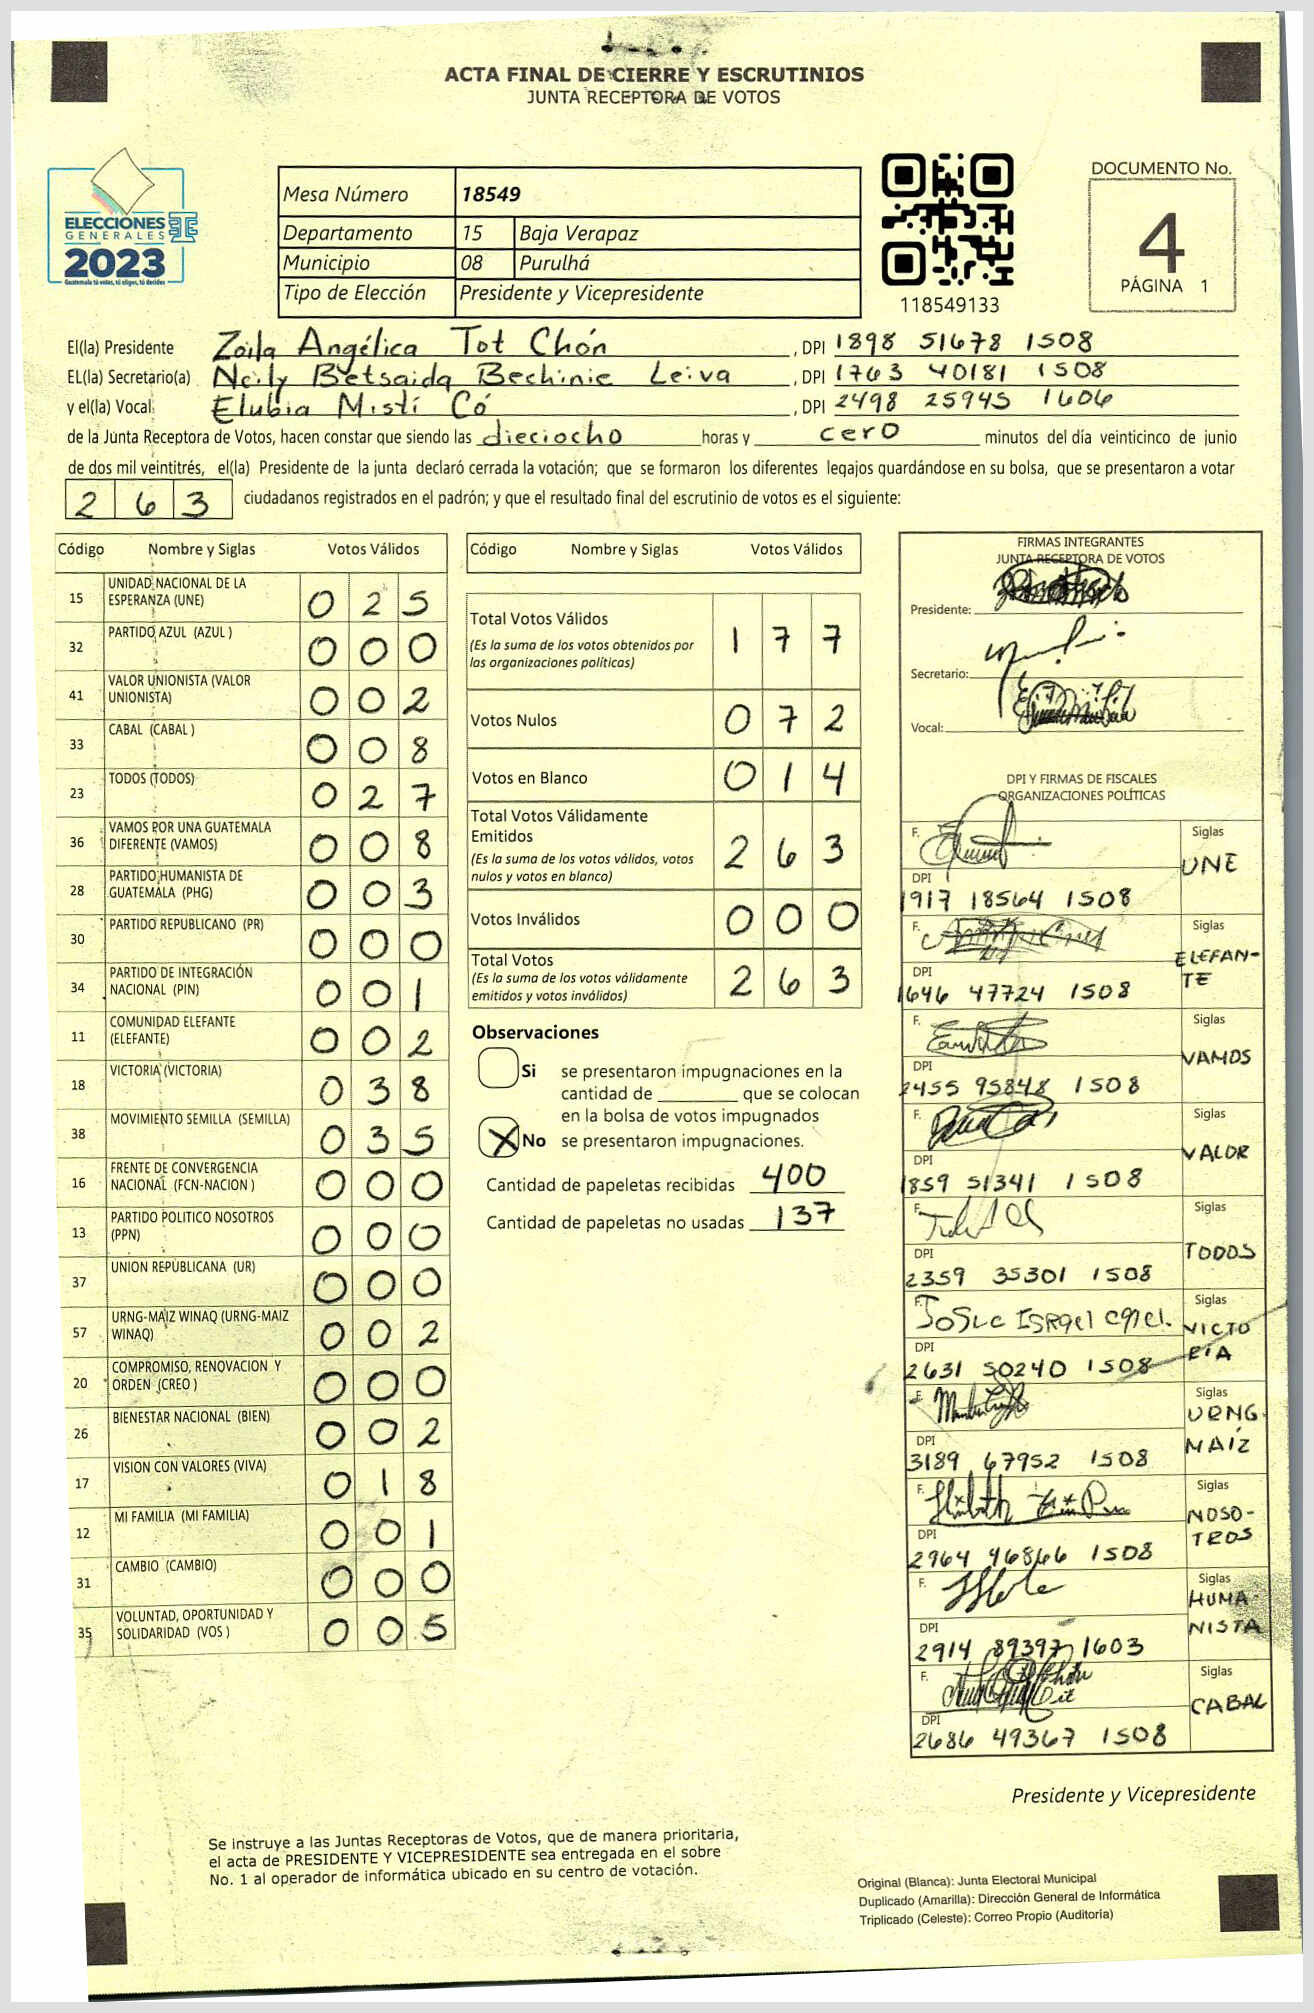 ACTA FINAL DE CIERRE Y ESCRUTINIOS
JUNTA RECEPTORA DE VOTOS
ELECCIONES
GENERALES
2023
Guatemala tú votas, tú eliges, tú decides
TSE
Mesa Número 18549
Departamento 15 Baja Verapaz
Municipio 08 Purulhá
Tipo de Elección Presidente y Vicepresidente
118549133
DOCUMENTO No.
4
PÁGINA 1
El(la) Presidente Zoila Angélica Tot Chón , DPI 1898 51678 1508
EL(la) Secretario(a) Neily Betsaida Bechinie Leiva , DPI 1763 40181 1508
y el(la) Vocal: Elubia Mistí Có , DPI 2498 25945 1606
de la Junta Receptora de Votos, hacen constar que siendo las dieciocho horas y cero minutos del día veinticinco de junio
de dos mil veintitrés, el(la) Presidente de la junta declaró cerrada la votación; que se formaron los diferentes legajos guardándose en su bolsa, que se presentaron a votar
263 ciudadanos registrados en el padrón; y que el resultado final del escrutinio de votos es el siguiente:
Código Nombre y Siglas Votos Válidos
15 UNIDAD NACIONAL DE LA ESPERANZA (UNE) 025
32 PARTIDO AZUL (AZUL ) 000
41 VALOR UNIONISTA (VALOR UNIONISTA) 002
33 CABAL (CABAL ) 008
23 TODOS (TODOS) 027
36 VAMOS POR UNA GUATEMALA DIFERENTE (VAMOS) 008
28 PARTIDO HUMANISTA DE GUATEMALA (PHG) 003
30 PARTIDO REPUBLICANO (PR) 000
34 PARTIDO DE INTEGRACIÓN NACIONAL (PIN) 001
11 COMUNIDAD ELEFANTE (ELEFANTE) 002
18 VICTORIA (VICTORIA) 038
38 MOVIMIENTO SEMILLA (SEMILLA) 035
16 FRENTE DE CONVERGENCIA NACIONAL (FCN-NACION ) 000
13 PARTIDO POLITICO NOSOTROS (PPN) 000
37 UNION REPUBLICANA (UR) 000
57 URNG-MAIZ WINAQ (URNG-MAIZ WINAQ) 002
20 COMPROMISO, RENOVACION Y ORDEN (CREO ) 000
26 BIENESTAR NACIONAL (BIEN) 002
17 VISION CON VALORES (VIVA) 018
12 MI FAMILIA (MI FAMILIA) 001
31 CAMBIO (CAMBIO) 000
35 VOLUNTAD, OPORTUNIDAD Y SOLIDARIDAD (VOS ) 005
Código Nombre y Siglas Votos Válidos
Total Votos Válidos 177
(Es la suma de los votos obtenidos por
las organizaciones políticas)
Votos Nulos 072
Votos en Blanco 014
Total Votos Válidamente
Emitidos 263
(Es la suma de los votos válidos, votos
nulos y votos en blanco)
Votos Inválidos 000
Total Votos 263
(Es la suma de los votos válidamente
emitidos y votos inválidos)
Observaciones
Si se presentaron impugnaciones en la
cantidad de ________ que se colocan
en la bolsa de votos impugnados
X No se presentaron impugnaciones.
Cantidad de papeletas recibidas 400
Cantidad de papeletas no usadas 137
FIRMAS INTEGRANTES
JUNTA RECEPTORA DE VOTOS
Presidente:
Secretario:
Vocal:
DPI Y FIRMAS DE FISCALES
ORGANIZACIONES POLÍTICAS
F. Siglas UNE
DPI 1917 18564 1508
F. Siglas ELEFAN-
TE
DPI 1646 47724 1508
F. Siglas VAMOS
DPI 2455 95848 1508
F. Siglas VALOR
DPI 1859 51341 1508
F. Siglas TODOS
DPI 2359 35301 1508
F. Siglas VICTO
RIA
DPI 2631 50240 1508
F. Siglas URNG
MAÍZ
DPI 3189 67952 1508
F. Siglas NOSO-
TROS
DPI 2964 46866 1508
F. Siglas HUMA-
NISTA
DPI 2914 89397 1603
F. Siglas CABAL
DPI 2686 49367 1508
Presidente y Vicepresidente
Se instruye a las Juntas Receptoras de Votos, que de manera prioritaria,
el acta de PRESIDENTE Y VICEPRESIDENTE sea entregada en el sobre
No. 1 al operador de informática ubicado en su centro de votación.
Original (Blanca): Junta Electoral Municipal
Duplicado (Amarilla): Dirección General de Informática
Triplicado (Celeste): Correo Propio (Auditoría)